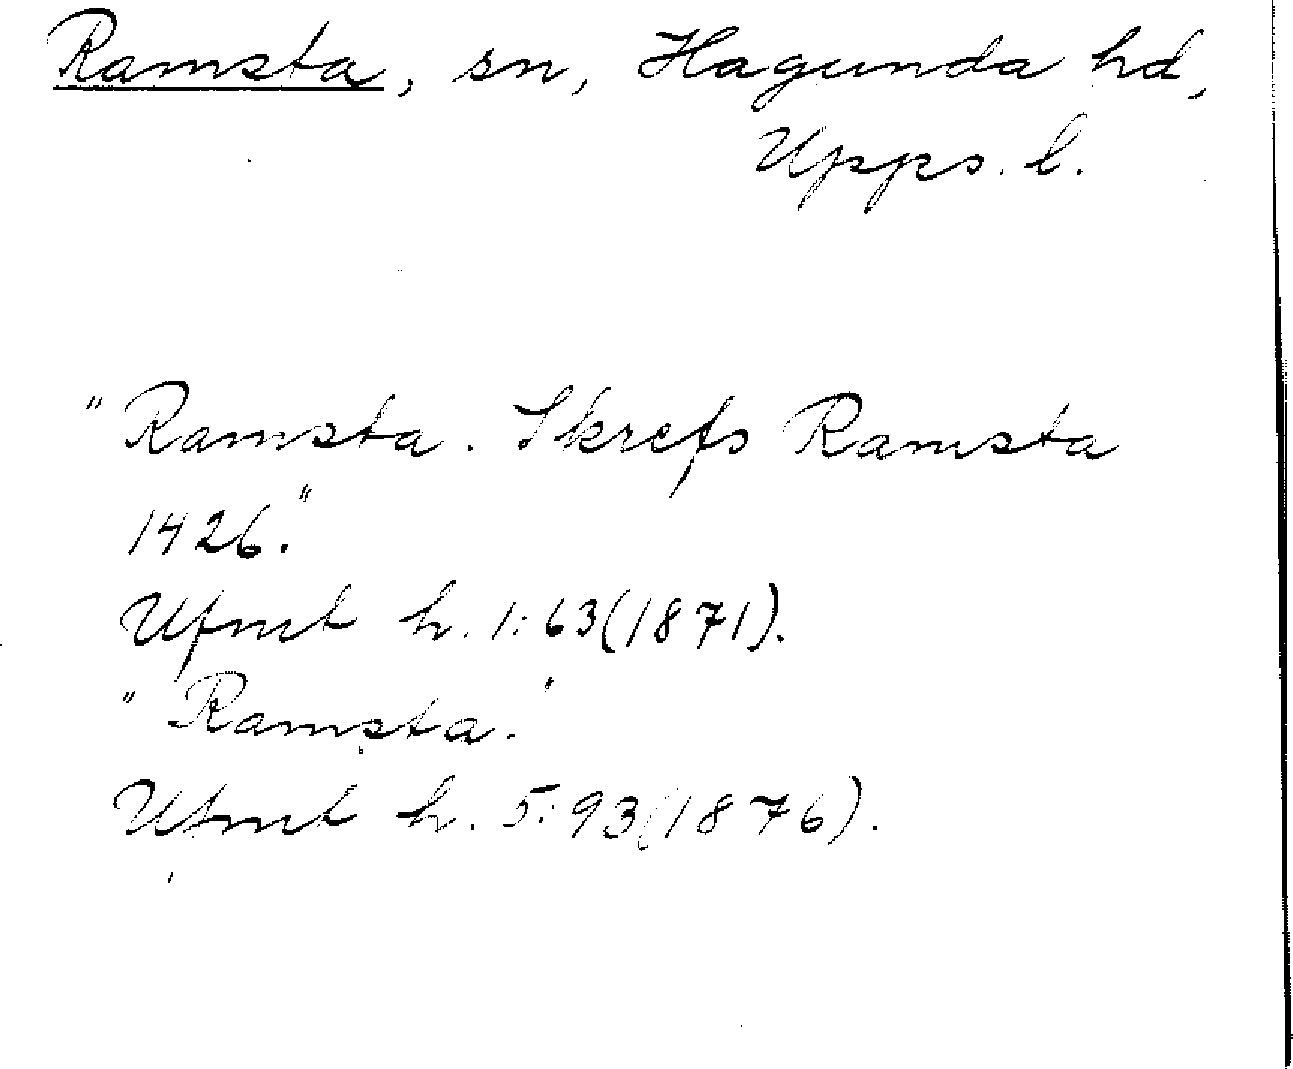 Ramsta, sn, Hagunda hd,
Upps. l.
"Ramsta. Skrefs Ramsta
1426."
Ufmt h. 1:63(1871).
"Ramsta."
Ufmt h. 5:93(1876).